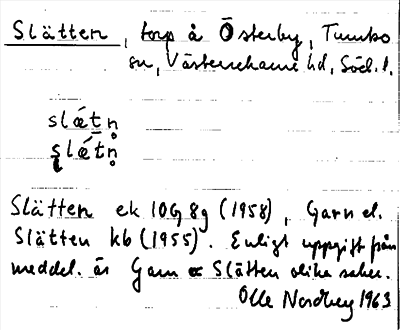 Slätten, torp å Österby, Tumbo
sn, Västerrekarne hd, Söd. l.
slǽtn̥
slǽtn̥
Slätten ek 10G 8g (1958), Garn el.
Slätten kb (1955). Enligt uppgift från
meddel. är Garn o Slätten olika saker.
Olle Nordberg 1963